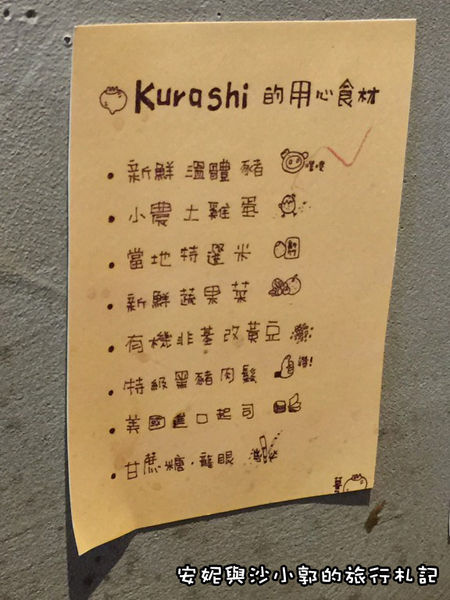 Kurashi 的用心食材
• 新鮮溫體豬 嘿嘿
• 小農土雞蛋
• 當地特選米
• 新鮮蔬果菜
• 有機非基改黃豆
• 特級黑豬肉鬆 讚!
• 美國進口起司
• 甘蔗糖.龍眼
安妮與沙小郭的旅行札記